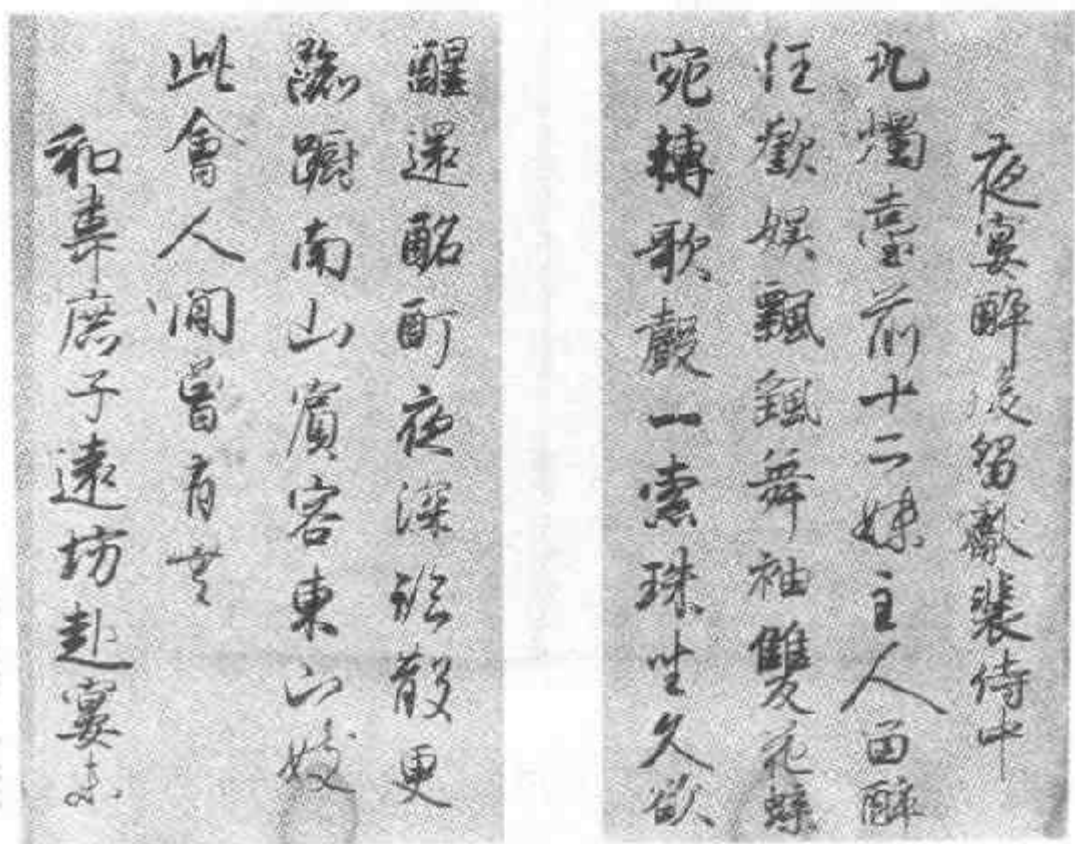 夜宴醉後留獻裴侍中
九燭臺前十二姝主人留醉
任歡娛飄颻舞袖雙飛蝶
宛轉歌聲一索珠坐久欲
醒還酩酊夜深臨散更
踟躕南山賓客東山妓
此會人間曾有無
和韋庶子遠坊赴宴未